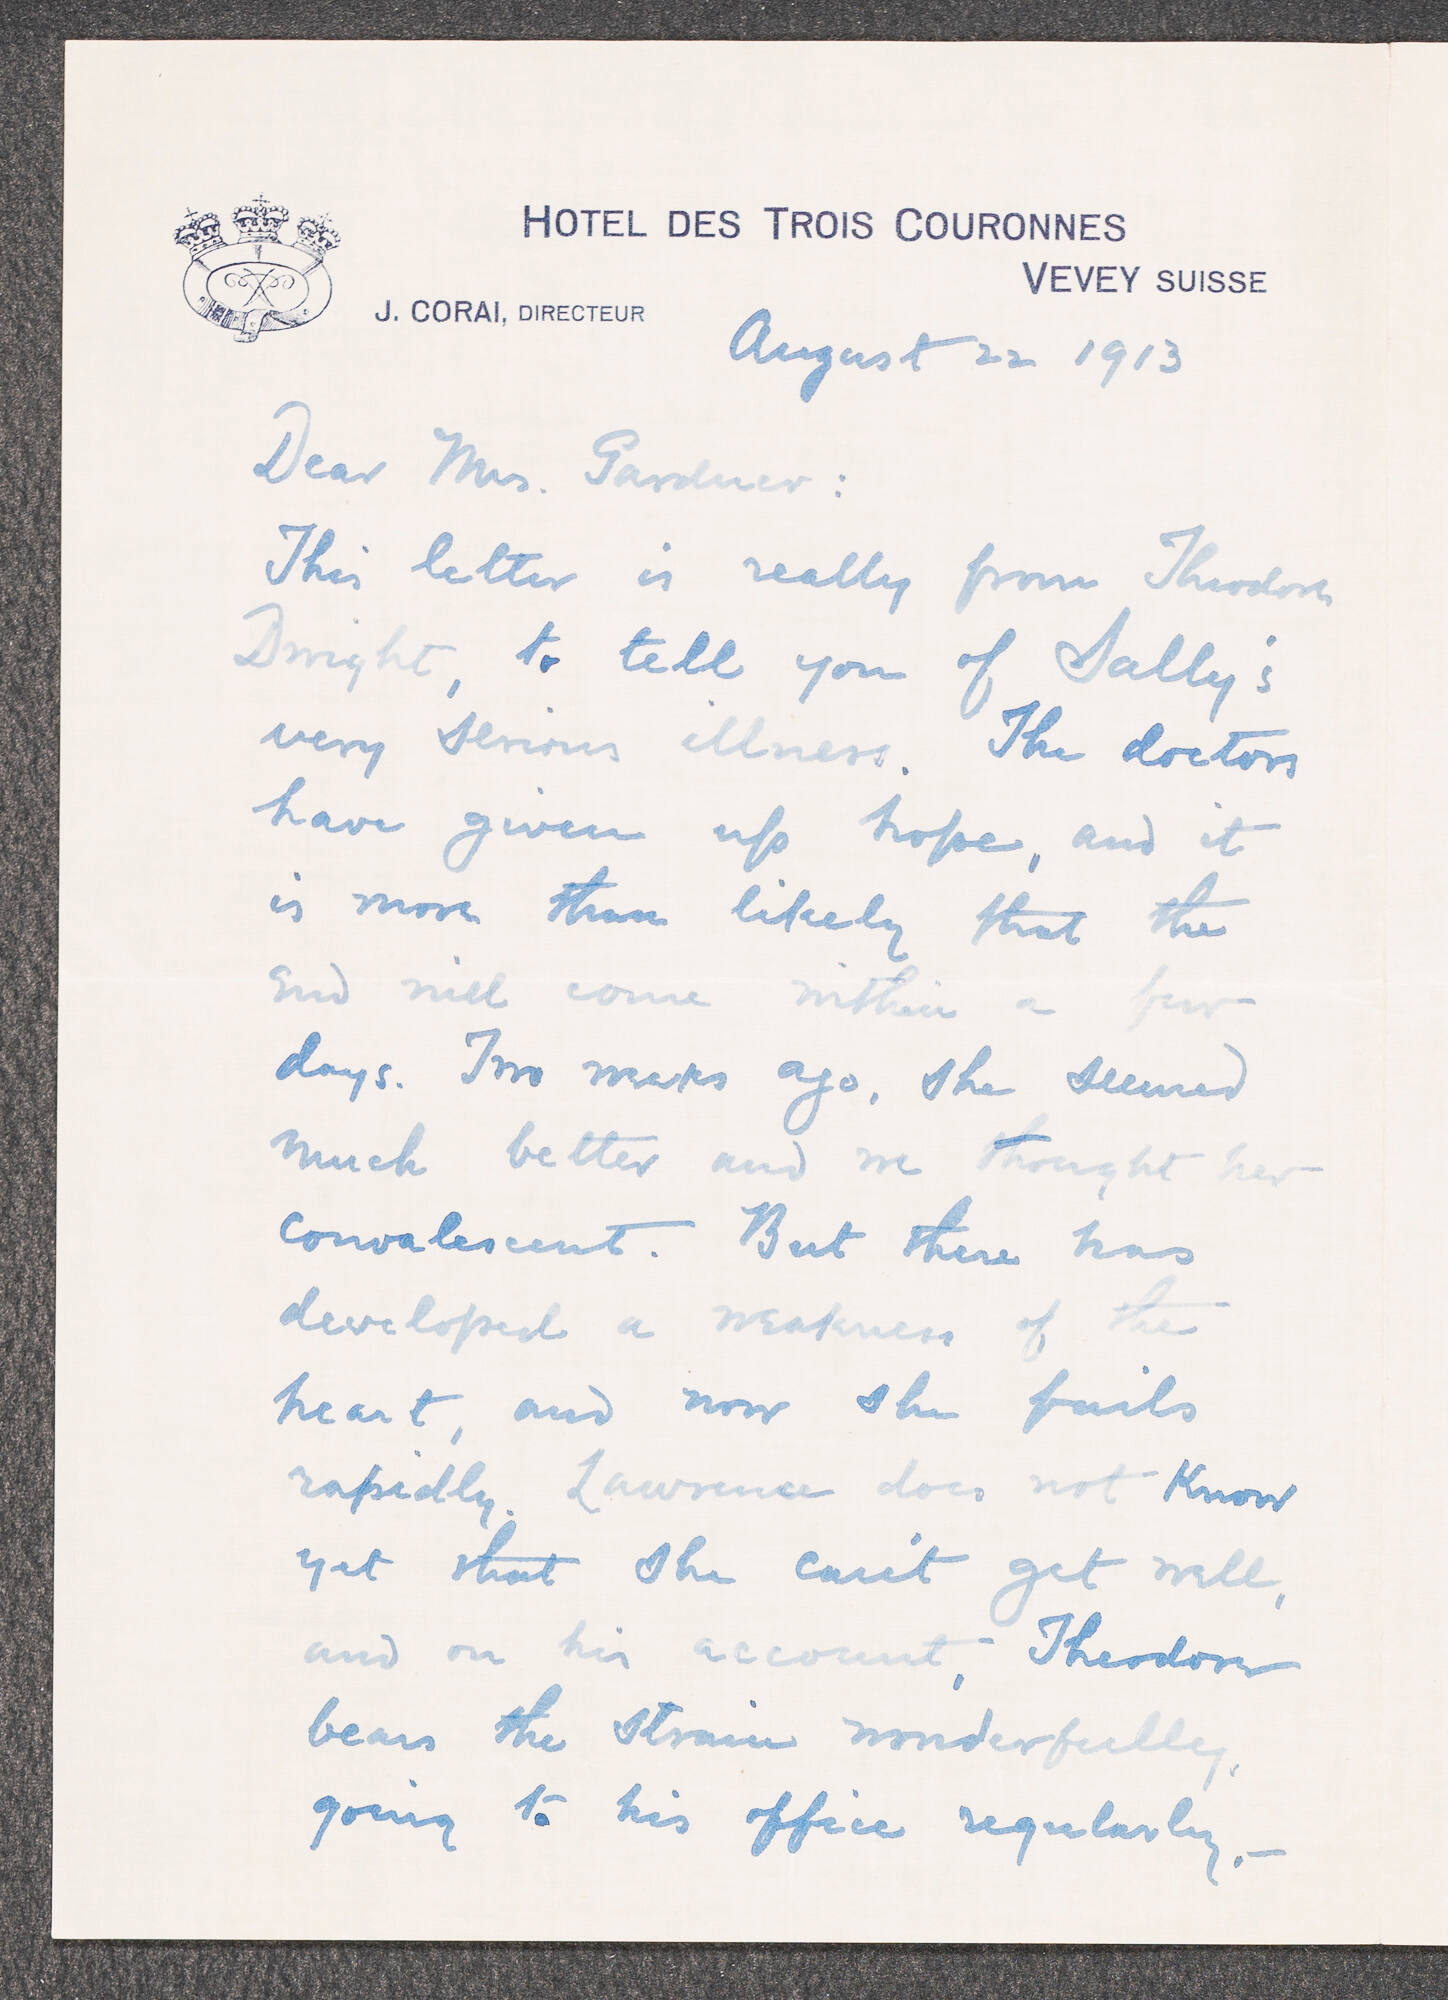 HOTEL DES TROIS COURONNES
VEVEY SUISSE
J. CORAI, DIRECTEUR
August 22 1913
Dear Mrs. Gardner:
This letter is really from Theodore
Dwight, to tell you of Sally's
very serious illness. The doctors
have given up hope, and it
is more than likely that the
end will come within a few
days. Two weeks ago, she seemed
much better and we thought her
convalescent. But there has
developed a weakness of the
heart, and now she fails
rapidly. Lawrence does not know
yet that she can't get well,
and on his account, Theodore
bears the strain wonderfully,
going to his office regularly.—